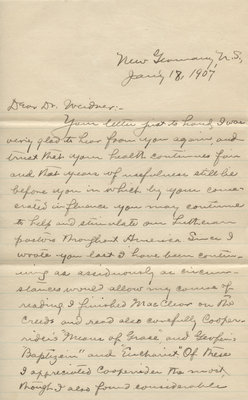 New Germany, N.S,
Jan'y 18, 1907
Dear Dr. Weidner:-
Your letter just to hand, I was
very glad to hear from you again, and
trust that your health continues fair
and that years of usefulness still lie
before you in which by your conse-
crated influence you may continue
to help and stimulate our Lutheran
pastors throughout America. Since I
wrote you last I have been contin-
uing as assiduously as circum-
stances would allow my course of
reading. I finished MacLear on the
Creeds and read also carefully Cooper-
rider's "Means of Grace" and Gerfen's
"Baptizein" and "Eucharist". Of these
I appreciated Cooperrider the most
though I also found considerable